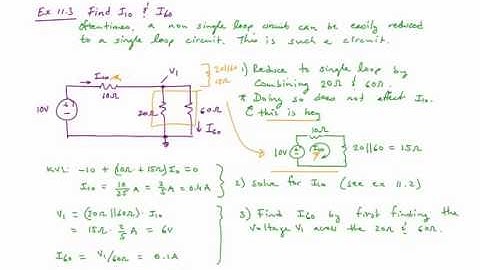 Ex 11.3 Find I10 & I60
Oftentimes, a non single loop circuit can be easily reduced
to a single loop circuit. This is such a circuit.
I10
10Ω
V1
20||60
15Ω
10V
20Ω
60Ω
I60
1) Reduce to single loop by
combining 20Ω & 60Ω.
* Doing so does not effect I10.
& this is key
10Ω
10V
I10
20||60 = 15Ω
KVL: -10 + (10Ω + 15Ω) I10 = 0
I10 = 10/25 A = 2/5 A = 0.4A
2) solve for I10 (see ex 11.2)
V1 = (20Ω||60Ω) · I10
= 15Ω · 2/5 A = 6V
I60 = V1/60Ω = 0.1A
3) Find I60 by first finding the
voltage V1 across the 20Ω & 60Ω.